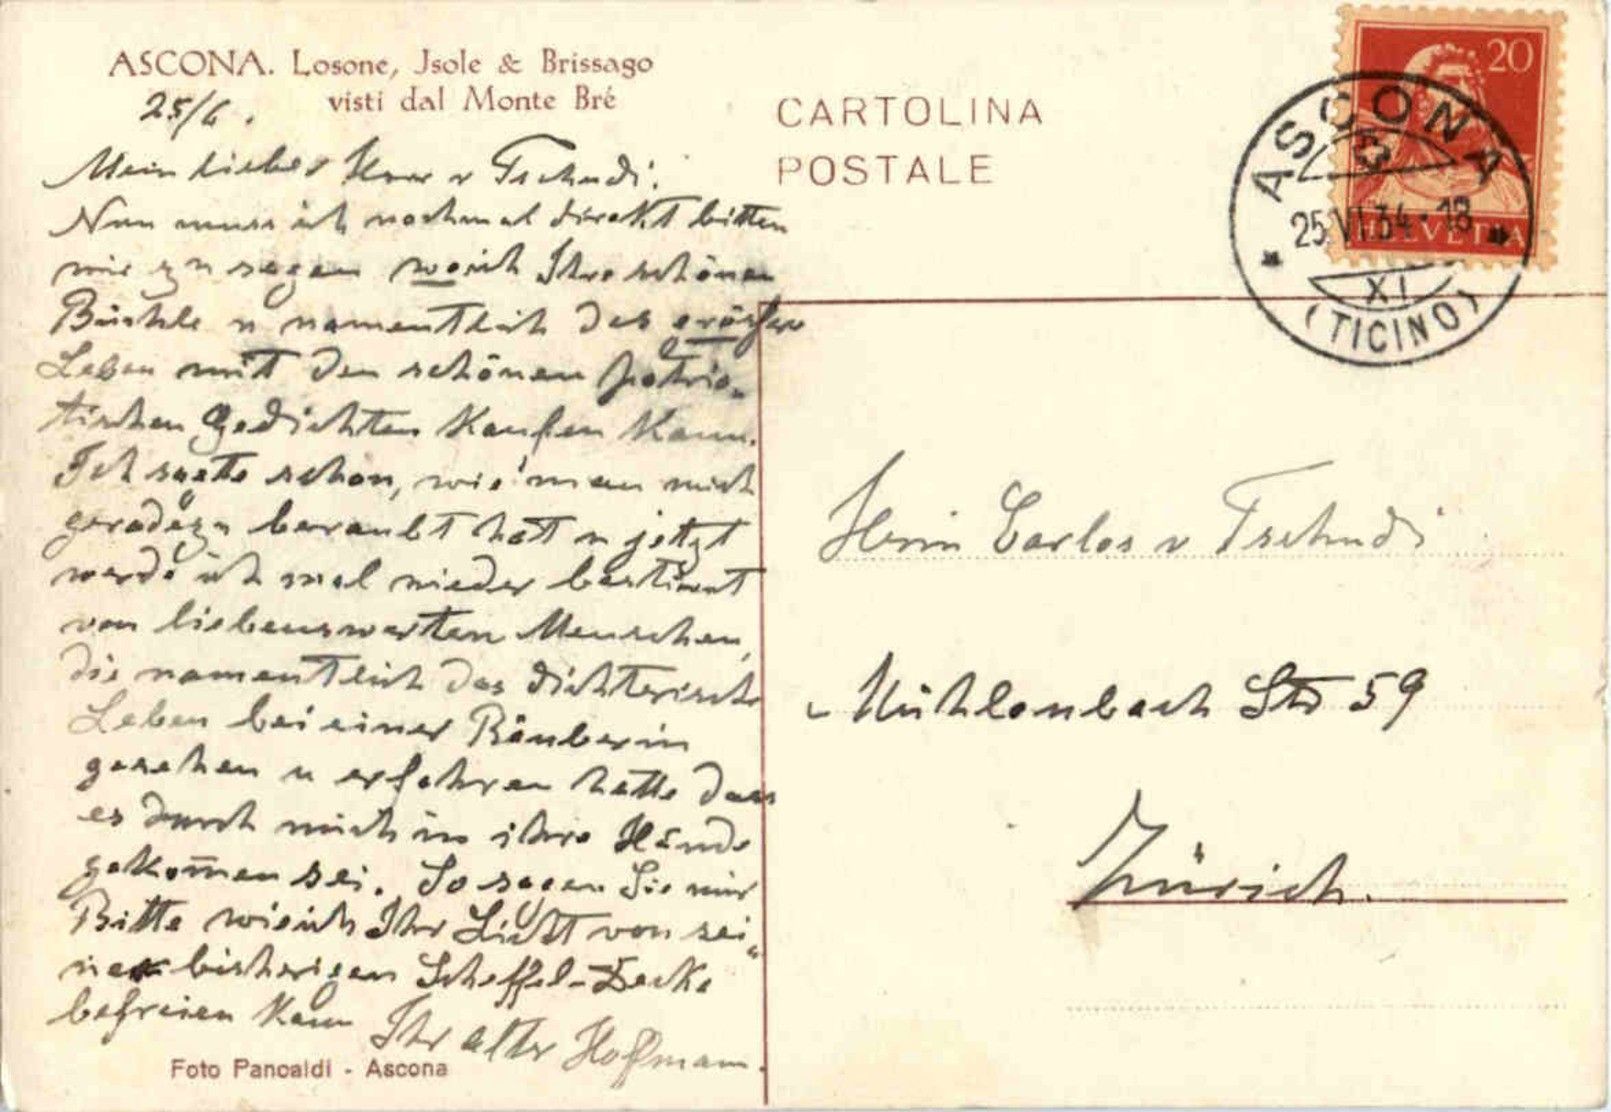 ASCONA. Losone, Jsole & Brissago
visti dal Monte Bré
25/6.
Mein lieber Herr v Tschudi!
Nun muss ich nochmal direkt bitten
mir zu sagen wo ich Ihre schönen
Büchle u namentlich das grösser
Leben mit den schönen patrio-
tischen Gedichten Kaufen Kann.
Ich sagte schon, wie man mich
geradezu beraubt hatt u jetzt
werde ich mal wieder bestimt
von liebenswerten Menschen,
die namentlich das dichterische
Leben bei einer Räuberin
gesehen u erfahren hatte dass
es durch mich in ihre Hände
gekom̄en sei. So sagen Sie mir
Bitte wie ich Ihr Licht von sei-
ner bisherigen Scheffel-Decke
befreien Kann Ihr alter Hoffmann.
Foto Pancaldi - Ascona
CARTOLINA
POSTALE
20
HELVETIA
ASCONA
25.VI.34-18
XI
(TICINO)
Herrn Carlos v Tschudi
Mühlenbach Str 59
Zürich.